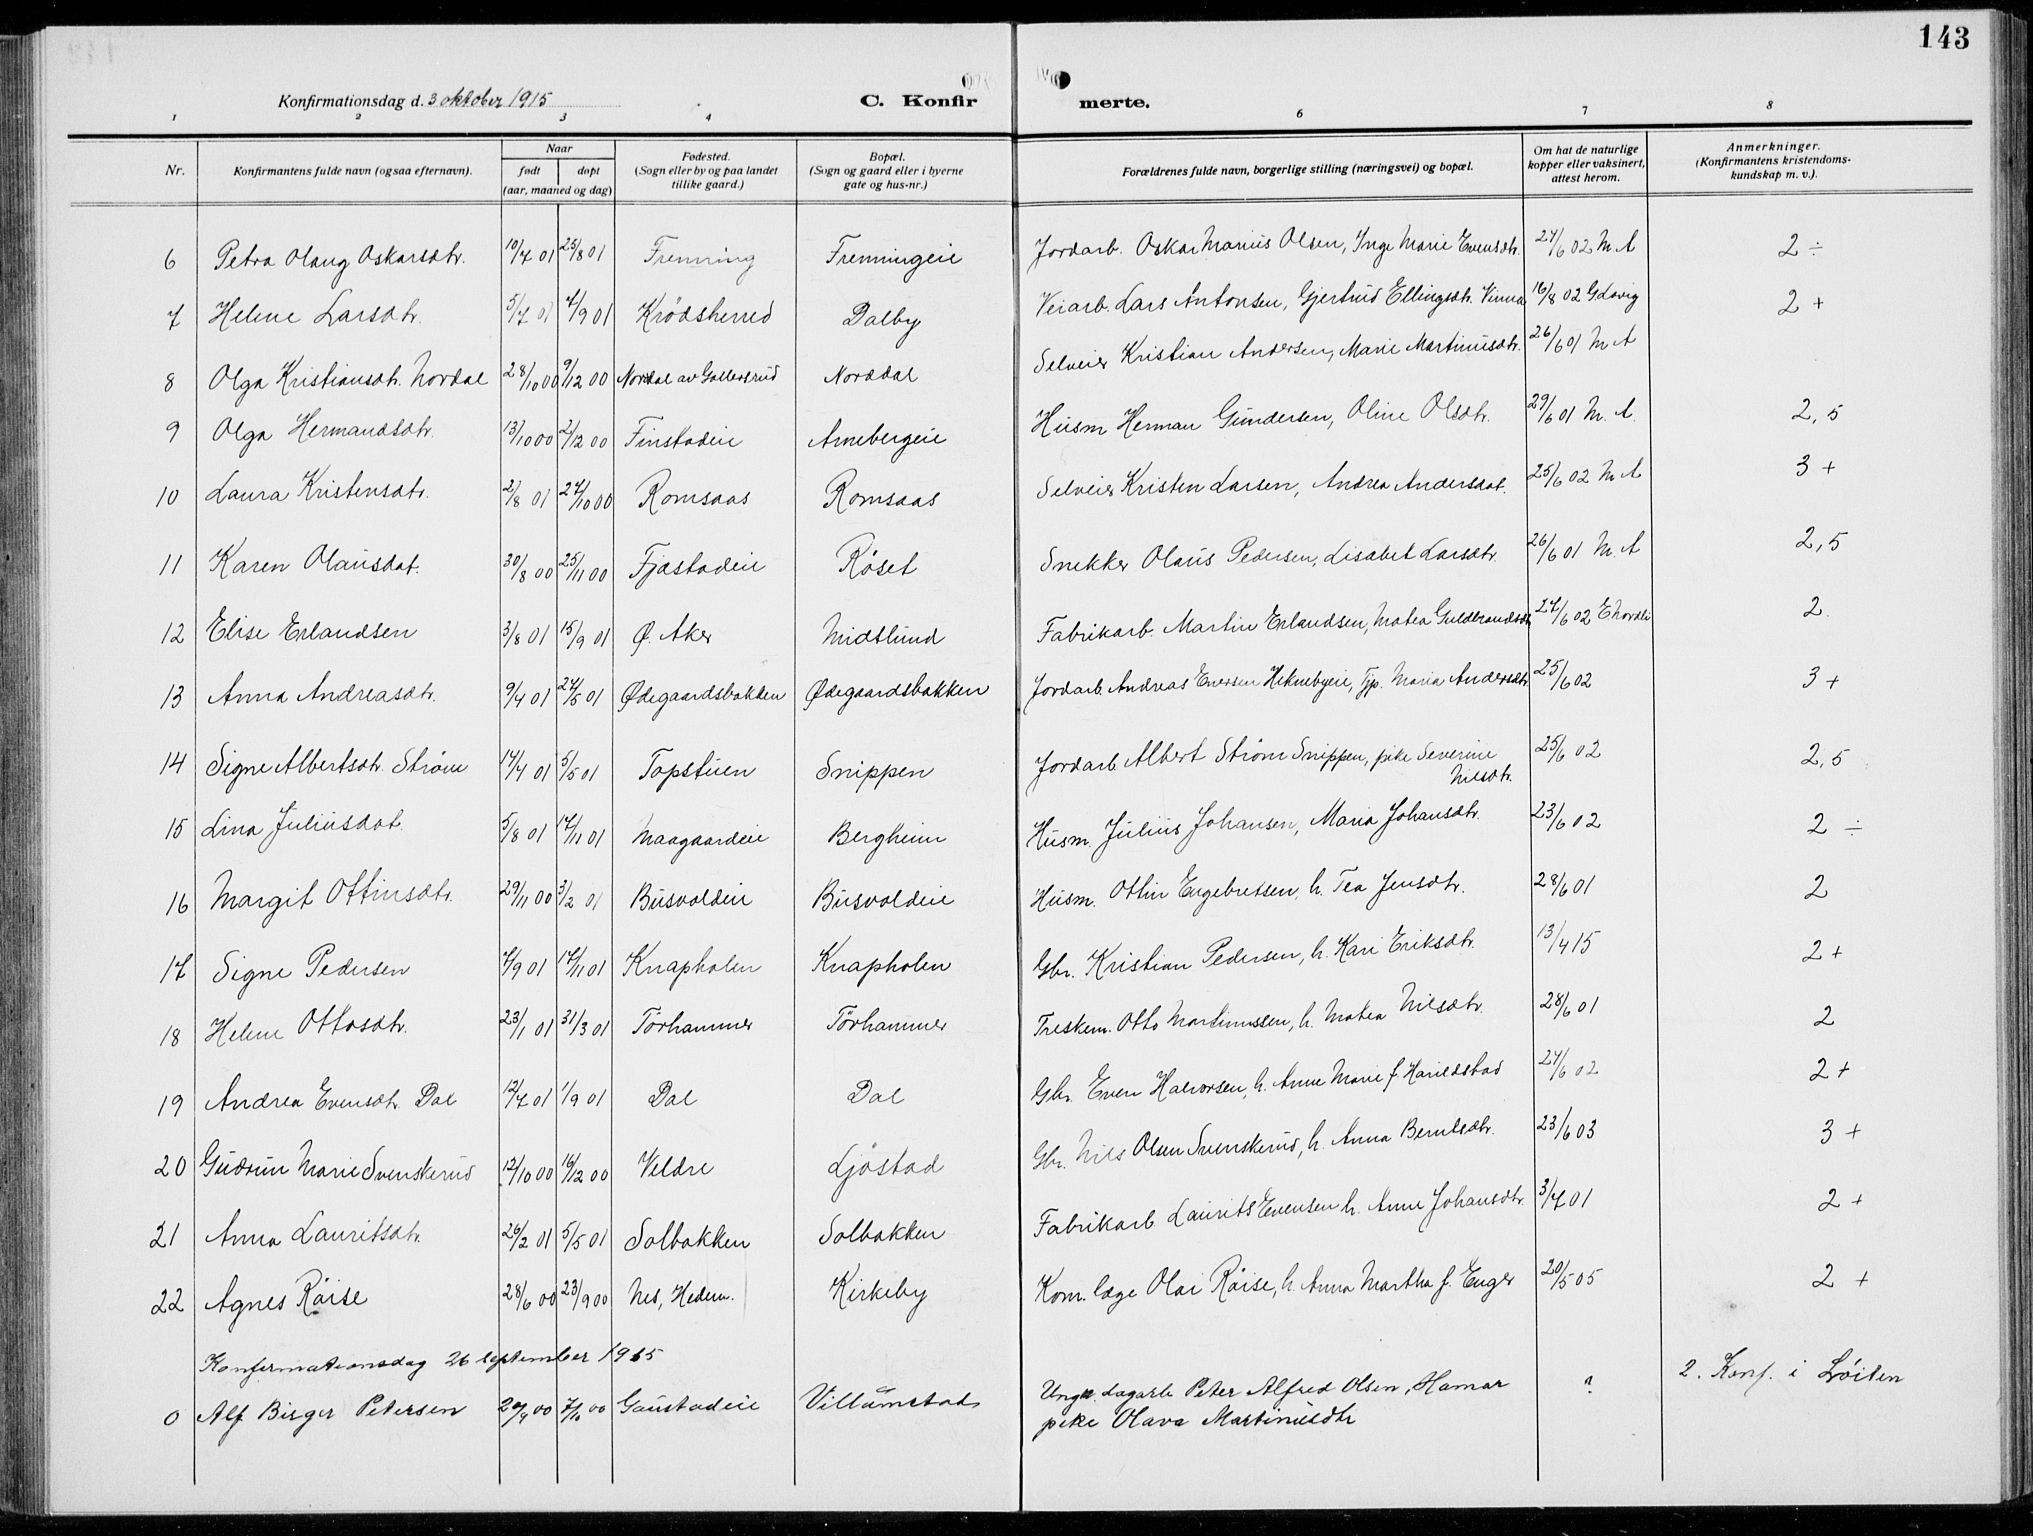 143
Konfirmationsdag d. 3 oktober 1915 C. Konfir merte.
1 2 3 4 6 7 8
Nr. Konfirmantens fulde navn (ogsaa efternavn). Naar født døpt (aar, maaned og dag) Fødested. (Sogn eller by og paa landet tillike gaard.) Bopæl. (Sogn og gaard eller i byerne gate og hus-nr.) Forældrenes fulde navn, borgerlige stilling (næringsvei) og bopæl. Om hat de naturlige kopper eller vaksinert, attest herom. Anmerkninger. (Konfirmantens kristendomskundskap m. v.).
6 Petra Olaug Oskarsdtr. 10/7 01 25/8 01 Frenning Frenningeie Jordarb. Oskar Marius Olsen, Inge Marie Evensdtr. 27/6 02 M A 2 ÷
7 Helene Larsdtr. 5/7 01 7/9 01 Krødsherred Dalby Veiarb. Lars Antonsen, Gjertrud Ellingsdtr. 16/8 02 G Lovig 2 +
8 Olga Kristiansdtr. Nordal 28/10 00 9/12 00 Nordal av Gallersrud Norddal Selveier Kristian Andersen, Marie Martinusdtr. 26/6 01 M A
9 Olga Hermansdtr. 13/10 00 2/12 00 Finstadeie Arnebergeie Husm Herman Gundersen, Oline Olsdtr. 29/6 01 M. A. 2,5
10 Laura Kristensdtr. 2/8 01 27/10 00 Romsaas Romsaas Selveier Kristen Larsen, Andrea Andersdat. 25/6 02 M A 3 +
11 Karen Olausdat. 30/8 00 25/11 00 Fjæstadeie Røset Snekker Olaus Pedersen, Lisabet Larsdtr. 26/6 01 M. A 2,5
12 Elise Erlandsen 3/8 01 15/9 01 Ø. Aker Midtlund Fabrikarb. Martin Erlandsen, Matea Guldbrandsdtr 27/6 02 2.
13 Anna Andreasdtr. 9/4 01 27/5 01 Ødegaardsbakken Ødegaardsbakken Jordarb. Andreas Eversen Heknebyeie, Tjp. Maria Andersdtr 25/6 02 3 +
14 Signe Albertsdtr. Strøm 14/4 01 5/5 01 Topstuen Snippen Jordarb Albert Strøm Snippen, pike Severine Nilsdtr. 25/6 02 2,5
15 Lina Juliusdat. 5/8 01 17/11 01 Maagaardeie Bergheim Husm. Julius Johansen, Maria Johansdtr. 23/6 02 2 ÷
16 Margit Ottinsdtr. 29/11 00 3/2 01 Busvoldeie Busvoldeie Husm. Ottin Engebretsen, h. Tea Jensdtr. 28/6 01 2
17 Signe Pedersen 7/9 01 17/11 01 Knapholen Knapholen Gbr. Kristian Pedersen, h. Kari Eriksdtr. 13/4 15 2 +
18 Helene Ottosdtr. 23/1 01 31/3 01 Torhammer Torhammer Treskem. Otto Martinussen, h. Matea Nilsdtr. 28/6 01 2
19 Andrea Evensdtr. Dal 12/7 01 1/9 01 Dal Dal Gbr. Even Halvorsen, h. Anne Marie f Harildstad 27/6 02 2 +
20 Gudrun Marie Svenskerud 12/10 00 16/12 00 Veldre Ljøstad Gbr. Nils Olsen Svenskerud, h. Anna Berntsdtr. 23/6 03 3 +
21 Anna Lauritsdtr. 26/2 01 5/5 01 Solbakken Solbakken Fabrikarb Laurits Evensen h. Anne Johansdtr. 3/7 01 2 +
22 Agnes Røise 28/6 00 23/9 00 Nes, Hedem. Kirkeby Kom. læge Olai Røise, h. Anna Martha f. Enger 20/5 05 2 +
Konfirmationsdag 26 september 1915
0 Alf Birger Petersen 7/10 00 Gaustadeie Villumstad Ungk. dagarb Peter Alfred Olsen, Hamar ? 2. Konf. i Løiten
pike Olava Martinusdtr